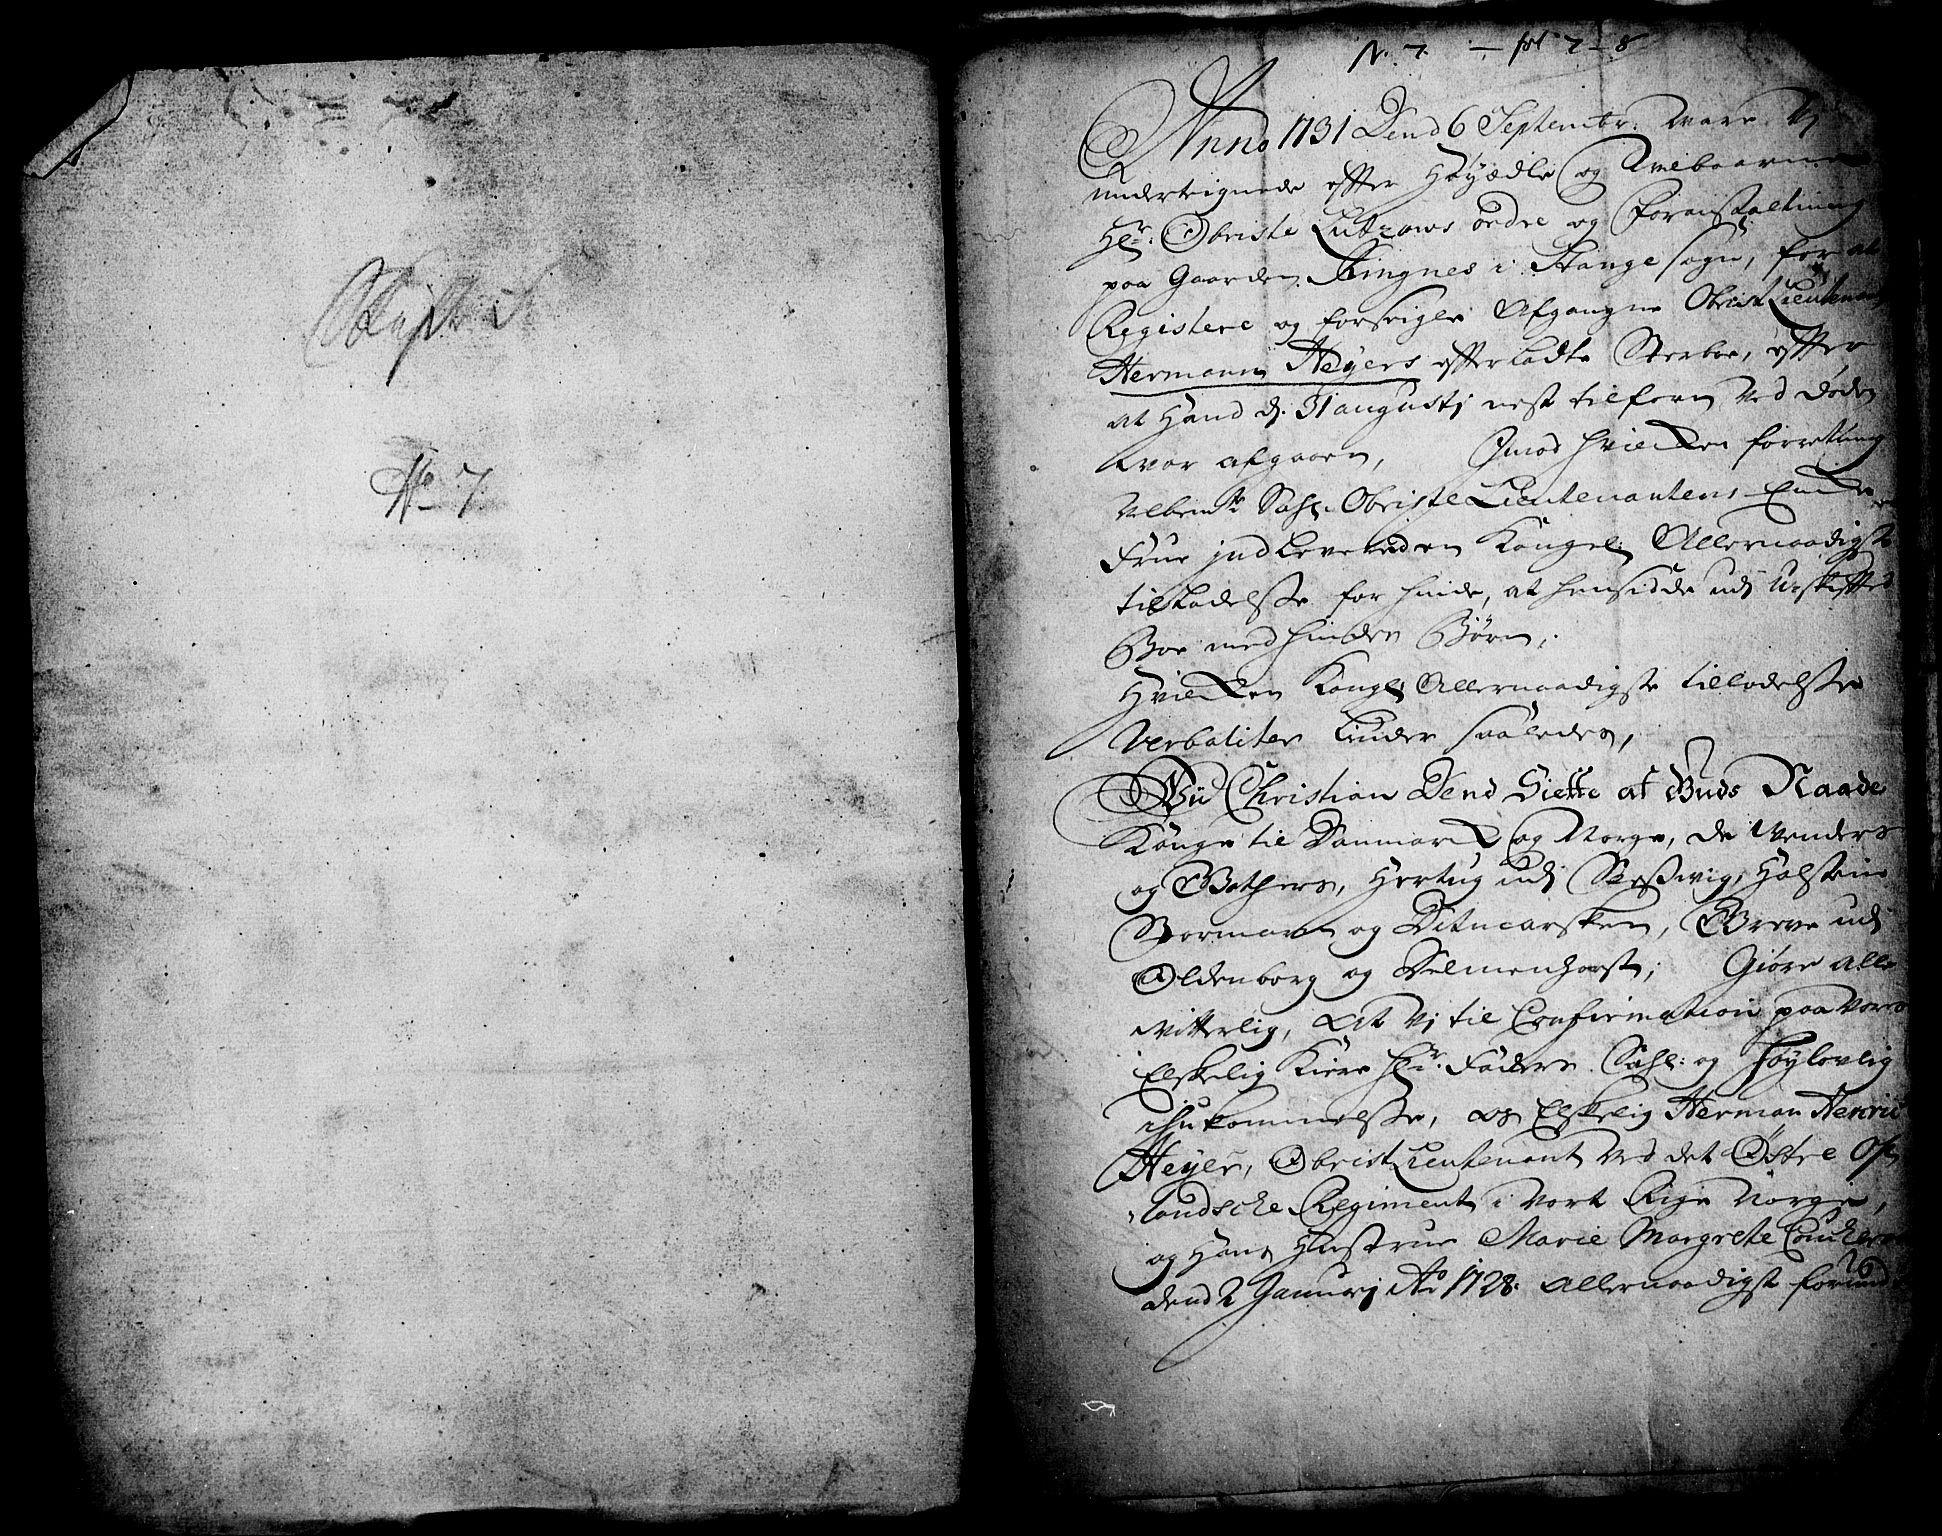 No 7
N. 7. — fol 7 - 8
Anno 1731 Dend 6 Septembr. Ware Vj
undertegnede effter Höyædle og Velbaarne
Hr. Obriste Lutzows ordre og foranstaltning
paa Gaarden Ringnes i Stange Sogn, for at
Registere og forseigle Afgangne ObristLieutenant
Hermann Heyers efterladte Sterboe, effter
at Hand d. 31 augustj nest tilforn ved døden
var afgaaen, Jmod hvilken forretning
Velbemte Sahl. ObristeLieutenantens Encke
Frue jndleverede en Kongel: Allernaadigste
tilladelsse for hinde, at hensidde udj Uskifftet
Boe med hindes Børn,
Hvilken Kongl: Allernaadigste tilladelsse
Verbaliter liuder saaledes,
Wii Christian Dend Siette af Guds Naade
Konge til Danmark og Norge, de Wenders
og Gothers, Hertug udj Slesswig, Holsten
Stormarn og Ditmarsken, Greve udj
Oldenborg og Delmenhorst; Giøre alle
vitterlig, At Vj til Confirmation paa Vores
Elskelig Kiere Hr. Faders Sahl: og Høylovlig
ihukommelsse, os Elskelig Herman Henric
Heyer, ObristLieutenant ved det Østre Op¬
landsche Regiment i Vort Rige Norge,
og Hans Hustrue Marie Margrete
dend 2 Januarj Ao 1728. allernaadigst forundt